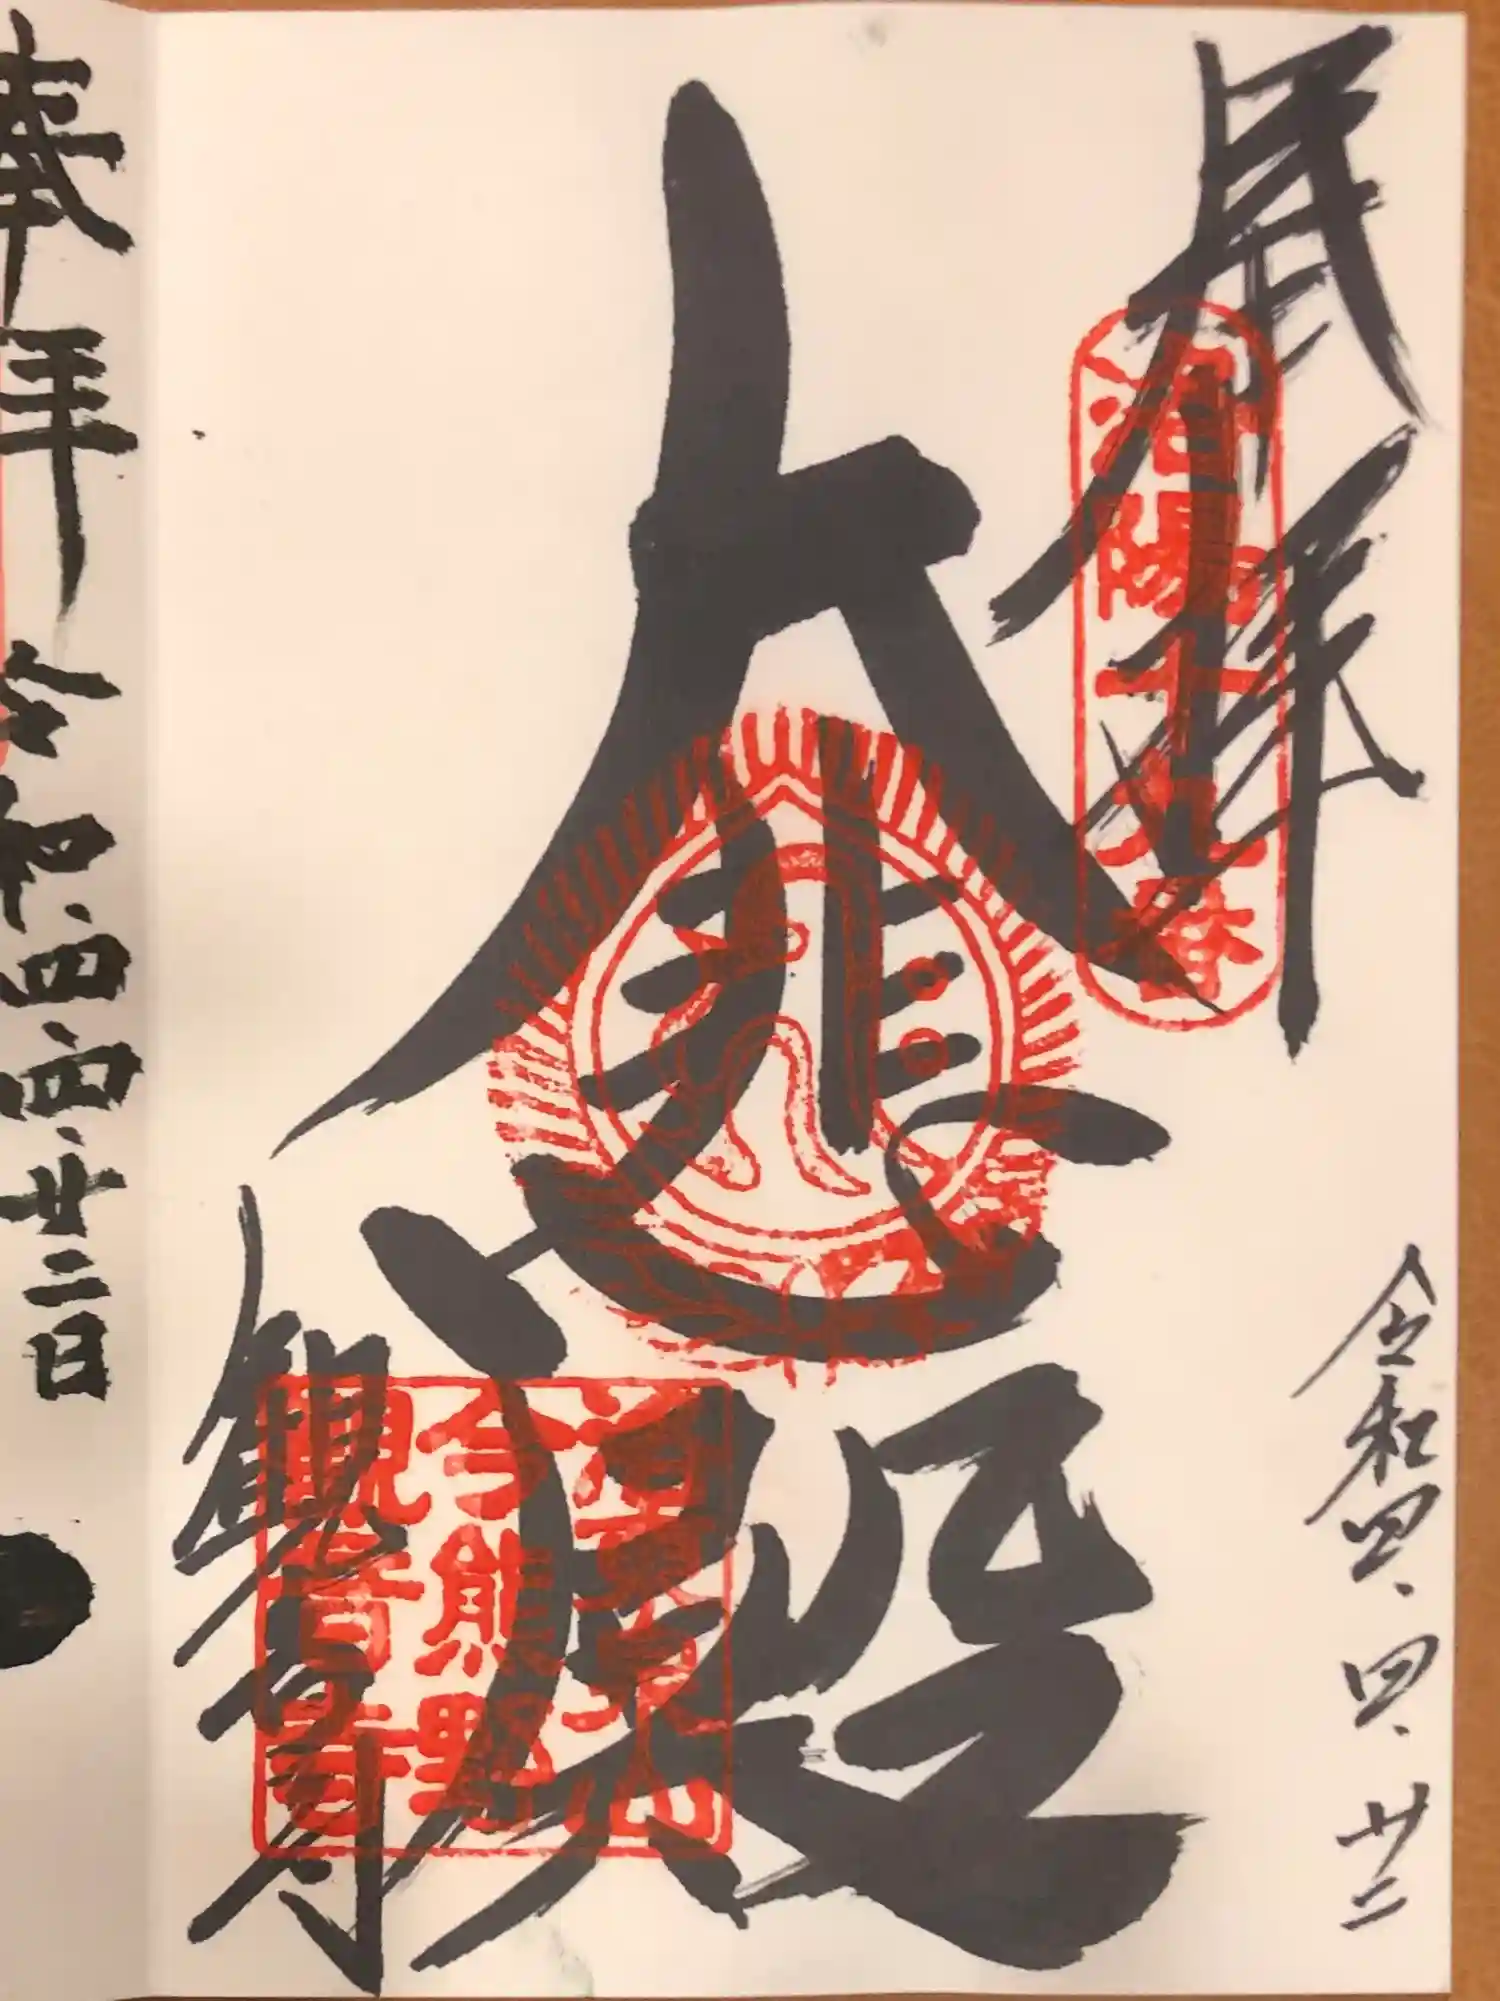 奉拝
洛陽十九番
令和四.四.廿二
大悲殿
洛東山
今熊野
観音寺
観音寺
奉拝
令和四.四.廿二日